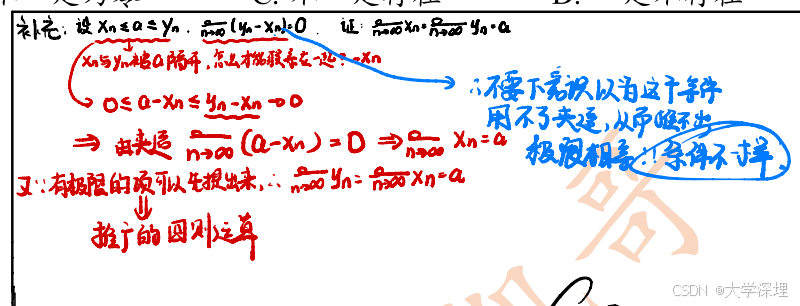 补充:设 xn≤a≤yn. lim n→∞ (yn-xn)=0. 证: lim n→∞ xn = lim n→∞ yn=a
xn与yn被a隔开,怎么才能联系在一起?-xn
0≤a-xn≤yn-xn→0
⇒ 由夹逼 lim n→∞ (a-xn)=0 ⇒ lim n→∞ xn=a
又∵有极限的项可以先提出来,∴ lim n→∞ yn= lim n→∞ xn=a
⇓
推广的四则运算
∴不要下意识以为这个条件
用不了夹逼,从而推不出
极限相等∵条件不一样
CSDN @大学深埋